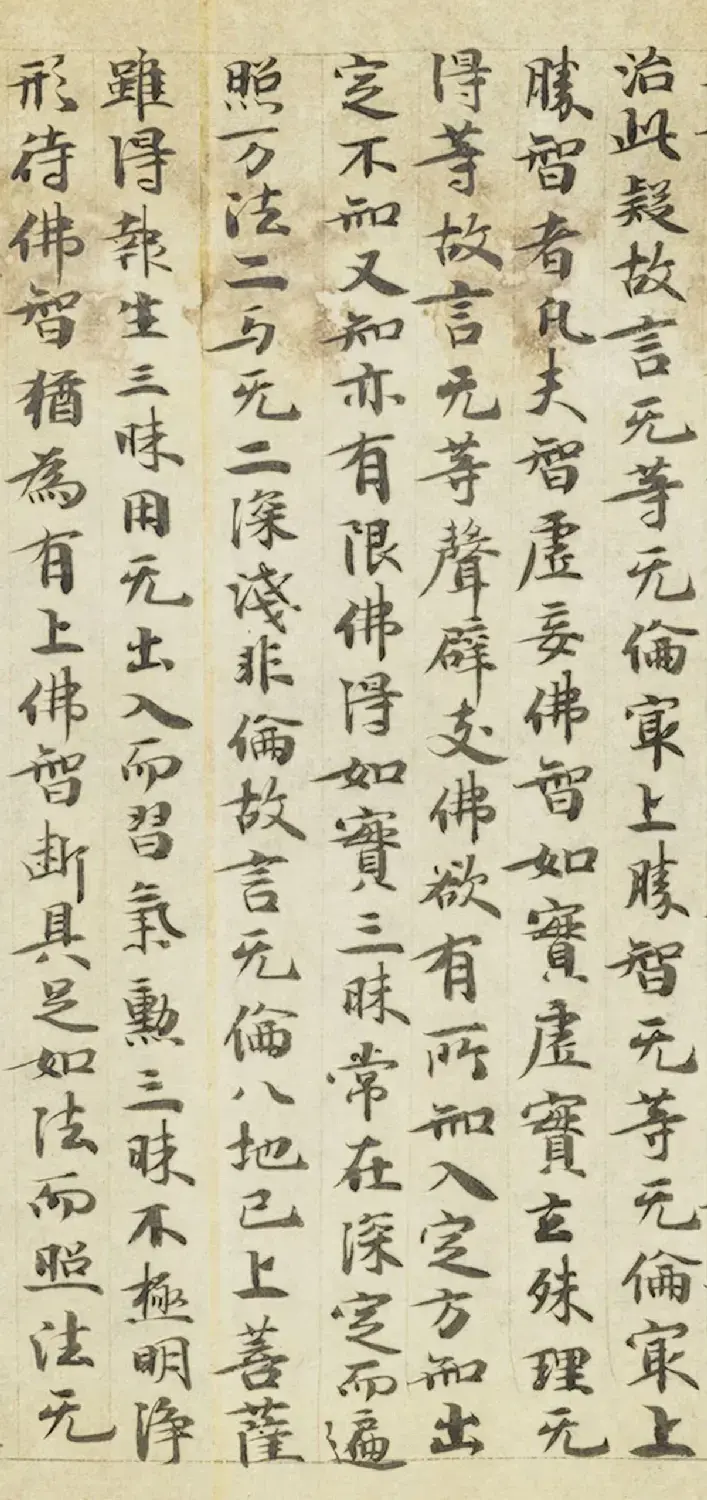 治此疑故言无等无倫冣上勝智无等无倫冣上
勝智者凡夫智虛妄佛智如實虛實玄殊理无
得等故言无等聲辟支佛欲有所知入定方知出
定不知又知亦有限佛得如實三昧常在深定而遍
照万法二与无二深淺非倫故言无倫八地已上菩薩
雖得報生三昧用无出入而習氣勳三昧不極明淨
形待佛智猶為有上佛智斷具足如法而照法无